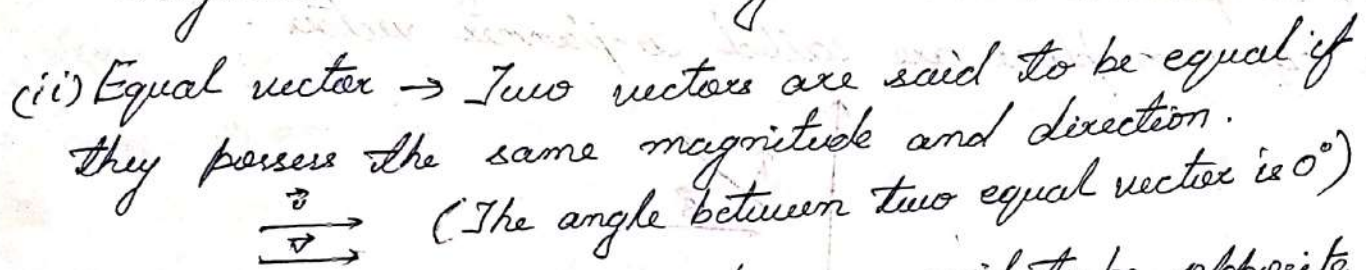 (ii) Equal vector → Two vectors are said to be equal if
they possess the same magnitude and direction.
(The angle between two equal vector is 0°)
said to be opposite